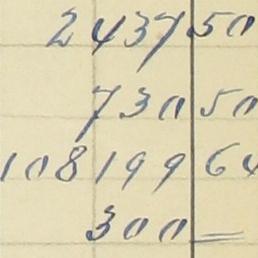 2437 50
730 50
108199 64
300 =